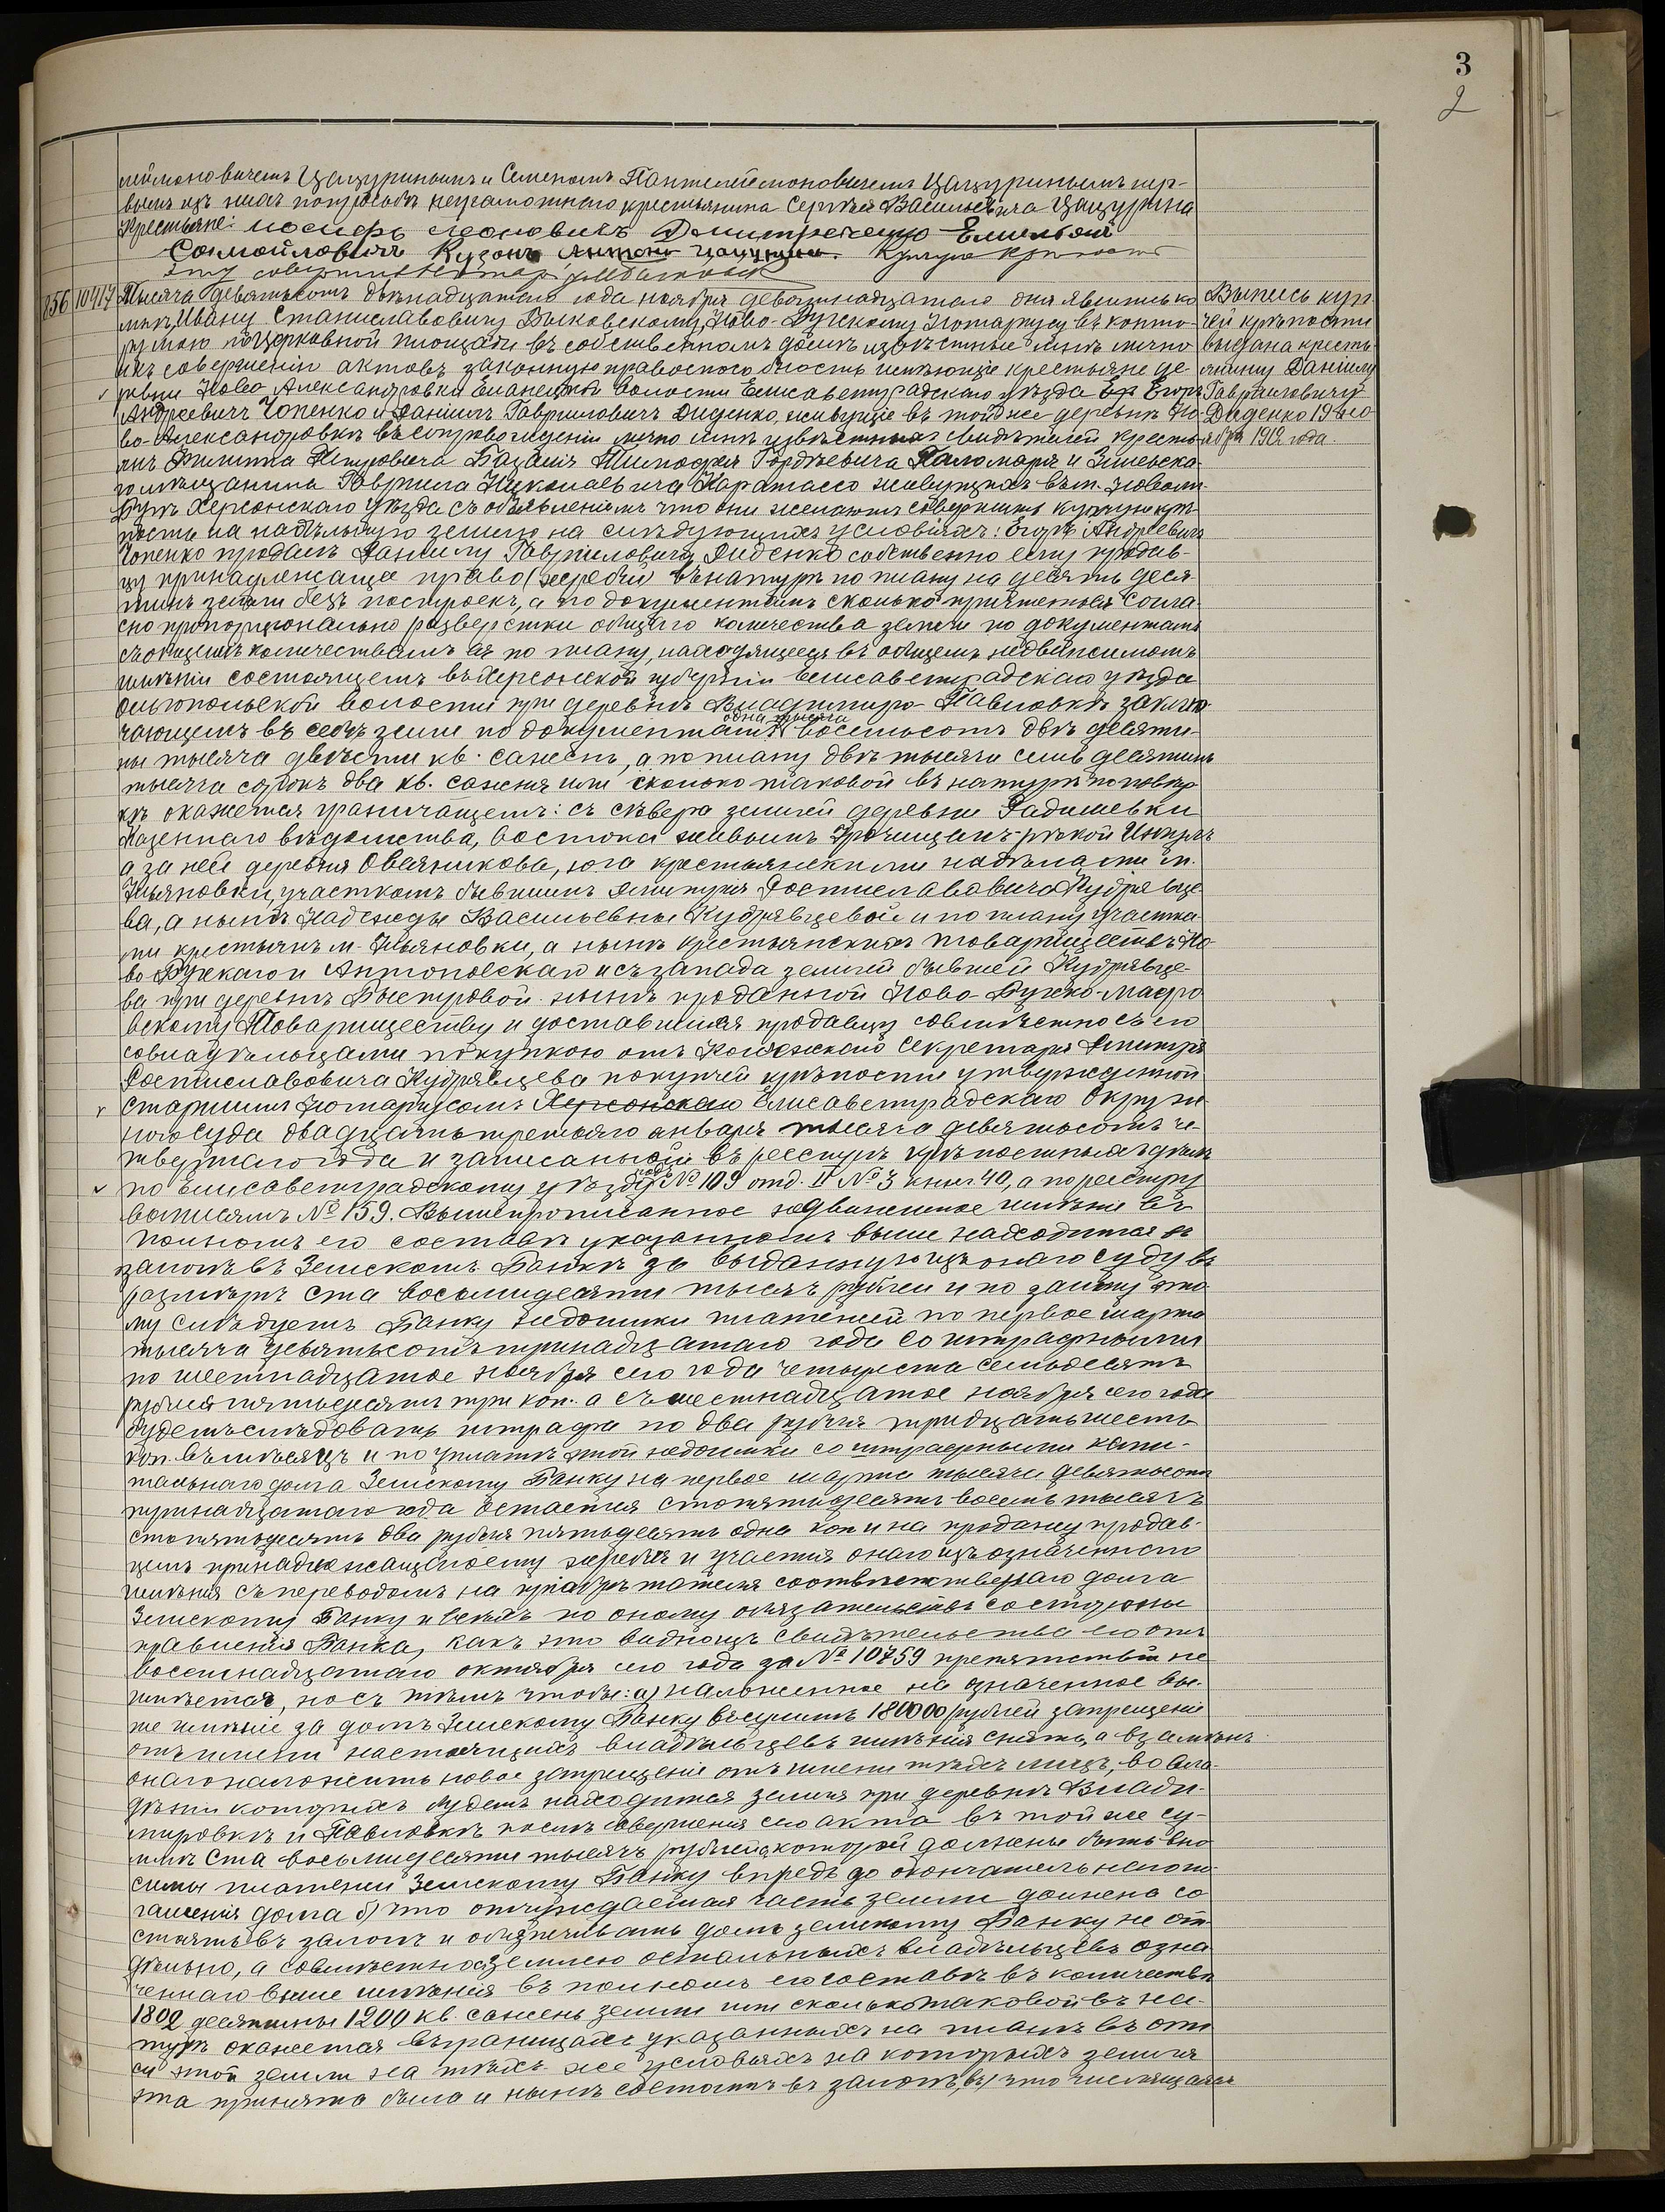 3
2
леймоновичемъ Цацуринымъ и Семеномъ Пантелеймоновичемъ Цацуринымъ пер-
вымъ изъ нихъ по просьбѣ неграмотнаго крестьянина Сергѣя Васильевича Цацурина
Крестьяне: Іосифъ Леоновичъ Дмитренко Емельян
Самойловичъ Кузонь Антонъ Цацуринъ. Купчую крѣпость
эту совершилъ Нотаріусъ
856 10417 Тысяча девятьсотъ двѣнадцатаго года ноября девятнадцатаго дня явились ко
мнѣ, Ивану Станиславовичу Выковскому, Ново-Бугскому Нотаріусу въ конто-
ру мою по Церковной площади въ собственномъ домѣ извѣстные мнѣ лично
къ совершенію актовъ законную правоспособность имѣющіе крестьяне де-
ревни Ново Александровки Еланецкой волости Елисаветградскаго уѣзда Ег Егоръ
Андреевичъ Чопенко и Даніилъ Гавриловичъ Диденко, живущіе въ той же деревнѣ Но-
во-Александровкѣ въ сопровожденіи лично мнѣ извѣстныхъ свидѣтелей крестъ-
янъ Филиппа Петровича Базаніи Тимофея Гордѣевича Паломаря и Зиньска-
го мѣщанина Гавриила Николаевича Каратассо живущихъ въ м. Новомъ
Бугѣ Херсонскаго уѣзда съ объявленіемъ что они желаютъ совершить купчую крѣ-
пость на надѣльную землю на слѣдующихъ условіяхъ: Егоръ Андреевичъ
Чопенко продалъ Даніилу Гавриловичу Диденко собственно ему продав-
цу принадлежаще право (жребій) въ натурѣ по плану на десять деся-
тинъ земли безъ построекъ, а по документамъ сколько причтется согла-
сно пропорціонально разверстки общаго количества земли по документамъ
съ общимъ количествамъ ея по плану, находящееся въ общемъ недвижимомъ
имѣніи состоящемъ въ Херсонской губерніи Елисаветградскаго уѣзда
ольгопольской волости при деревнѣ Владимиро-Павловкѣ заклю-
чающемъ въ себѣ земли по документамъ одна тысяча восемьсотъ двѣ десяти-
ны тысяча двѣсти кв. сажень, а по плану двѣ тысячи семь десятинъ
тысяча сорокъ два кв. сажня или сколько таковой въ натурѣ по повѣр-
кѣ окажется граничащемъ: съ сѣвера землей деревни Радишевки
Казеннаго вѣдомства, востока живымъ урочищемъ-рѣкой Ингулъ
а за ней деревня Овсяникова, юга крестьянскими надѣлами м.
Ульяновки, участкомъ бывшимъ Дмитрія Ростиславовича Кудрявце-
ва, а нынѣ Надежды Васильевны Кудрявцевой и по плану участка-
ми крестьянъ м. Ульяновки, а нынѣ крестьянскихъ товариществъ Но-
во-Бугскаго и Антоновскаго и съ запада землей бывшей Кудрявце-
ва при деревнѣ Быстровой нынѣ проданной Ново-Бугско-Мавро-
вскому Товариществу и доставшемся продавцу совмѣстно съ его
совладѣльцами покупкою отъ Коллежскаго Секретаря Дмитрія
Ростиславовича Кудрявцева по купчей крѣпости утвержденной
Старшимъ Нотаріусомъ Херсонскаго Елисаветградскаго Окруж-
ного Суда двадцать третьяго января тысяча девятьсотъ че-
твертаго года и записанной въ реестръ крѣпостныхъ дѣлъ
по Елисаветградскому уѣзду подъ № 109 отд. II № 3 книг. 40, а по реестру
вописямъ № 159. Вышепрописанное недвижимое имѣніе въ
полномъ его составѣ указанномъ выше находится въ
залогѣ въ Земскомъ Банкѣ за выданную изъ онаго ссуду въ
размѣрѣ ста восьмидесяти тысячъ рублей и по займу это-
му слѣдуетъ Банку недоимки платежей по первое марта
тысяча девятьсотъ тринадцатаго года со штрафными
по шестнадцатое ноября сего года четыреста семьдесятъ
рублей пятьдесятъ три коп. а съ шестнадцатое ноября сего года
будетъ слѣдовать штрафа по два рубля тридцать шесть
коп. въ мѣсяцъ и по уплатѣ этой недоимки со штрафными капи-
тальнаго долга Земскому Банку на первое марта тысяча девятьсотъ
тринадцатаго года остается сто пятьдесятъ восемь тысячъ
сто пятьдесятъ два рубля пятьдесятъ одна коп и на продажу продав-
цемъ принадлежащаго ему жребія и участія онаго изъ означеннаго
имѣнія съ переводомъ на пріобрѣтателя соотвѣтственнаго долга
Земскому Банку и всѣхъ по оному обязательствъ со стороны
правленія Банка, какъ это видно изъ свидѣтельства его отъ
восемнадцатаго октября сего года за № 10759 препятствій не
имѣется, но съ тѣмъ чтобы: а) наложенное на означенное вы-
ше имѣніе за долгъ Земскому Банку въ суммѣ 180000 рублей запрещеніе
отъ имени настоящихъ владѣльцевъ имѣнія снять, а взамѣнъ
онаго наложить новое запрещеніе отъ имени тѣхъ лицъ, во вла-
дѣніи которыхъ будетъ находится земля при деревнѣ Влади-
мировкѣ и Павловкѣ послѣ совершенія сего акта въ той же су-
ммѣ ста восьмидесяти тысячъ рублей, которой должны быть вно-
симы платежи Земскому Банку впредь до окончательнаго пог-
гашенія долга б) что отчуждаемая часть земли должна со-
стоять въ залогѣ и обезпечивать долгъ земскому Банку не от-
дѣльно, а совмѣстно съ землею остальныхъ владѣльцевъ озна-
ченнаго выше имѣнія въ полномъ его составѣ въ количествѣ
1802 десятины 1200 кв. сажень земли или сколько таковой въ на-
турѣ окажется въ границахъ указанныхъ на планѣ въ опи-
си этой земли на тѣхъ же условіяхъ на которыхъ земля
эта принята была и нынѣ состоитъ въ залогѣ, в) что числящаяся
Выпись куп-
чей крѣпости
выдана кресть-
янину Даніилу
Гавриловичу
Диденко 19 но-
ября 1912 года.